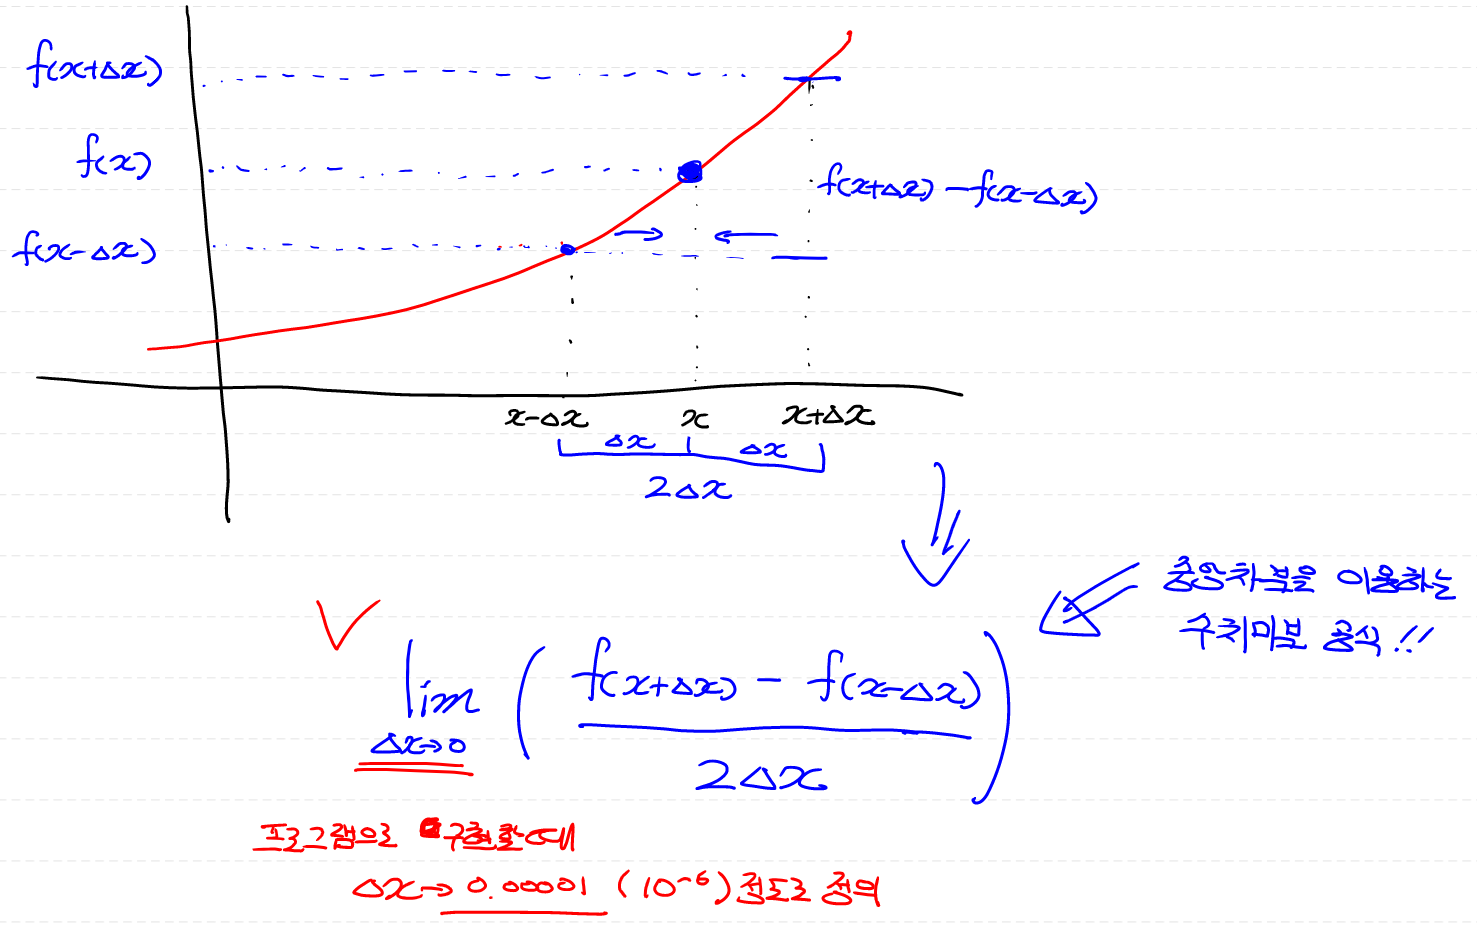 f(x+Δx)
f(x)
f(x+Δx) - f(x-Δx)
f(x-Δx)
x-Δx x x+Δx
Δx Δx
2Δx
중앙차분을 이용하는
수치미분 공식!!
lim Δx→0 ( f(x+Δx) - f(x-Δx) / 2Δx )
프로그램으로 구현할 때
Δx → 0.00001 (10⁻⁶) 정도로 정의